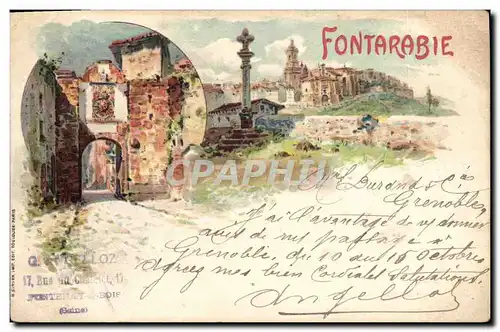 FONTARABIE
CPARAMA
Mrs. Durand & Cie
Grenoble
J'ai l'avantage de vs donner
avis de mon passage à
Grenoble, du 10 au 15 octobre
agréez mes bien Cordiales Salutations,
17, Rue du
FONTENAY-BOIS
(Seine)